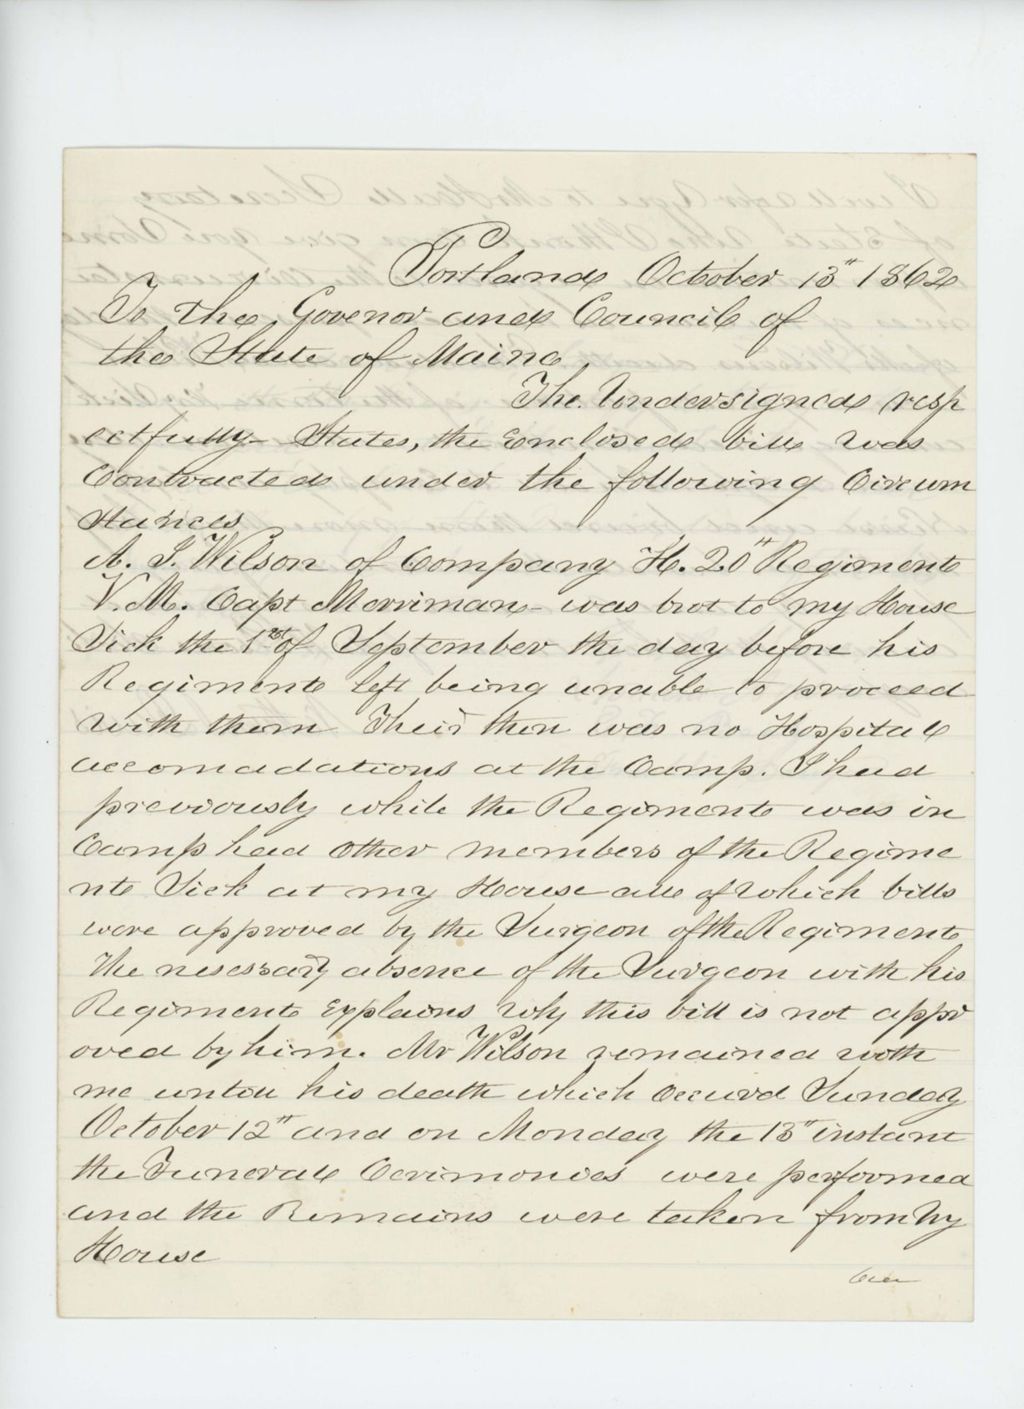 Portland October 13" 1862
To the Govenor and Council of
the State of Maine
The Undersigned resp
ectfully States, the Enclosed bill was
Contracted under the following Circum
stances
A. S. Wilson of Company H. 20" Regiment
V.M. Capt Merriman was brot to my House
Sick the 1st of September the day before his
Regiment left being unable to proceed
with them Their then was no Hospital
accomadations at the Camp. I had
previously while the Regiment was in
Camp had other members of the Regime
nt Sick at my House all of which bills
were approved by the Surgeon of the Regiment
The nesessary absence of the Surgeon with his
Regiment Explains Why this bill is not appr
oved by him. Mr Wilson remained with
me untill his death which Occurd Sunday
October 12" and on Monday the 13" instant
the Funeral Cerimonies were performed
and the Remains were taken from my
House
Over